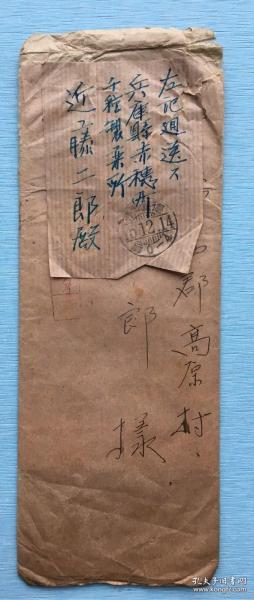 左記廻送ス
兵庫縣赤穂町
千種製薬所
近藤二郎殿
15.12.14
郡髙原村
郎様
孔夫子旧书网
www.kongfz.com